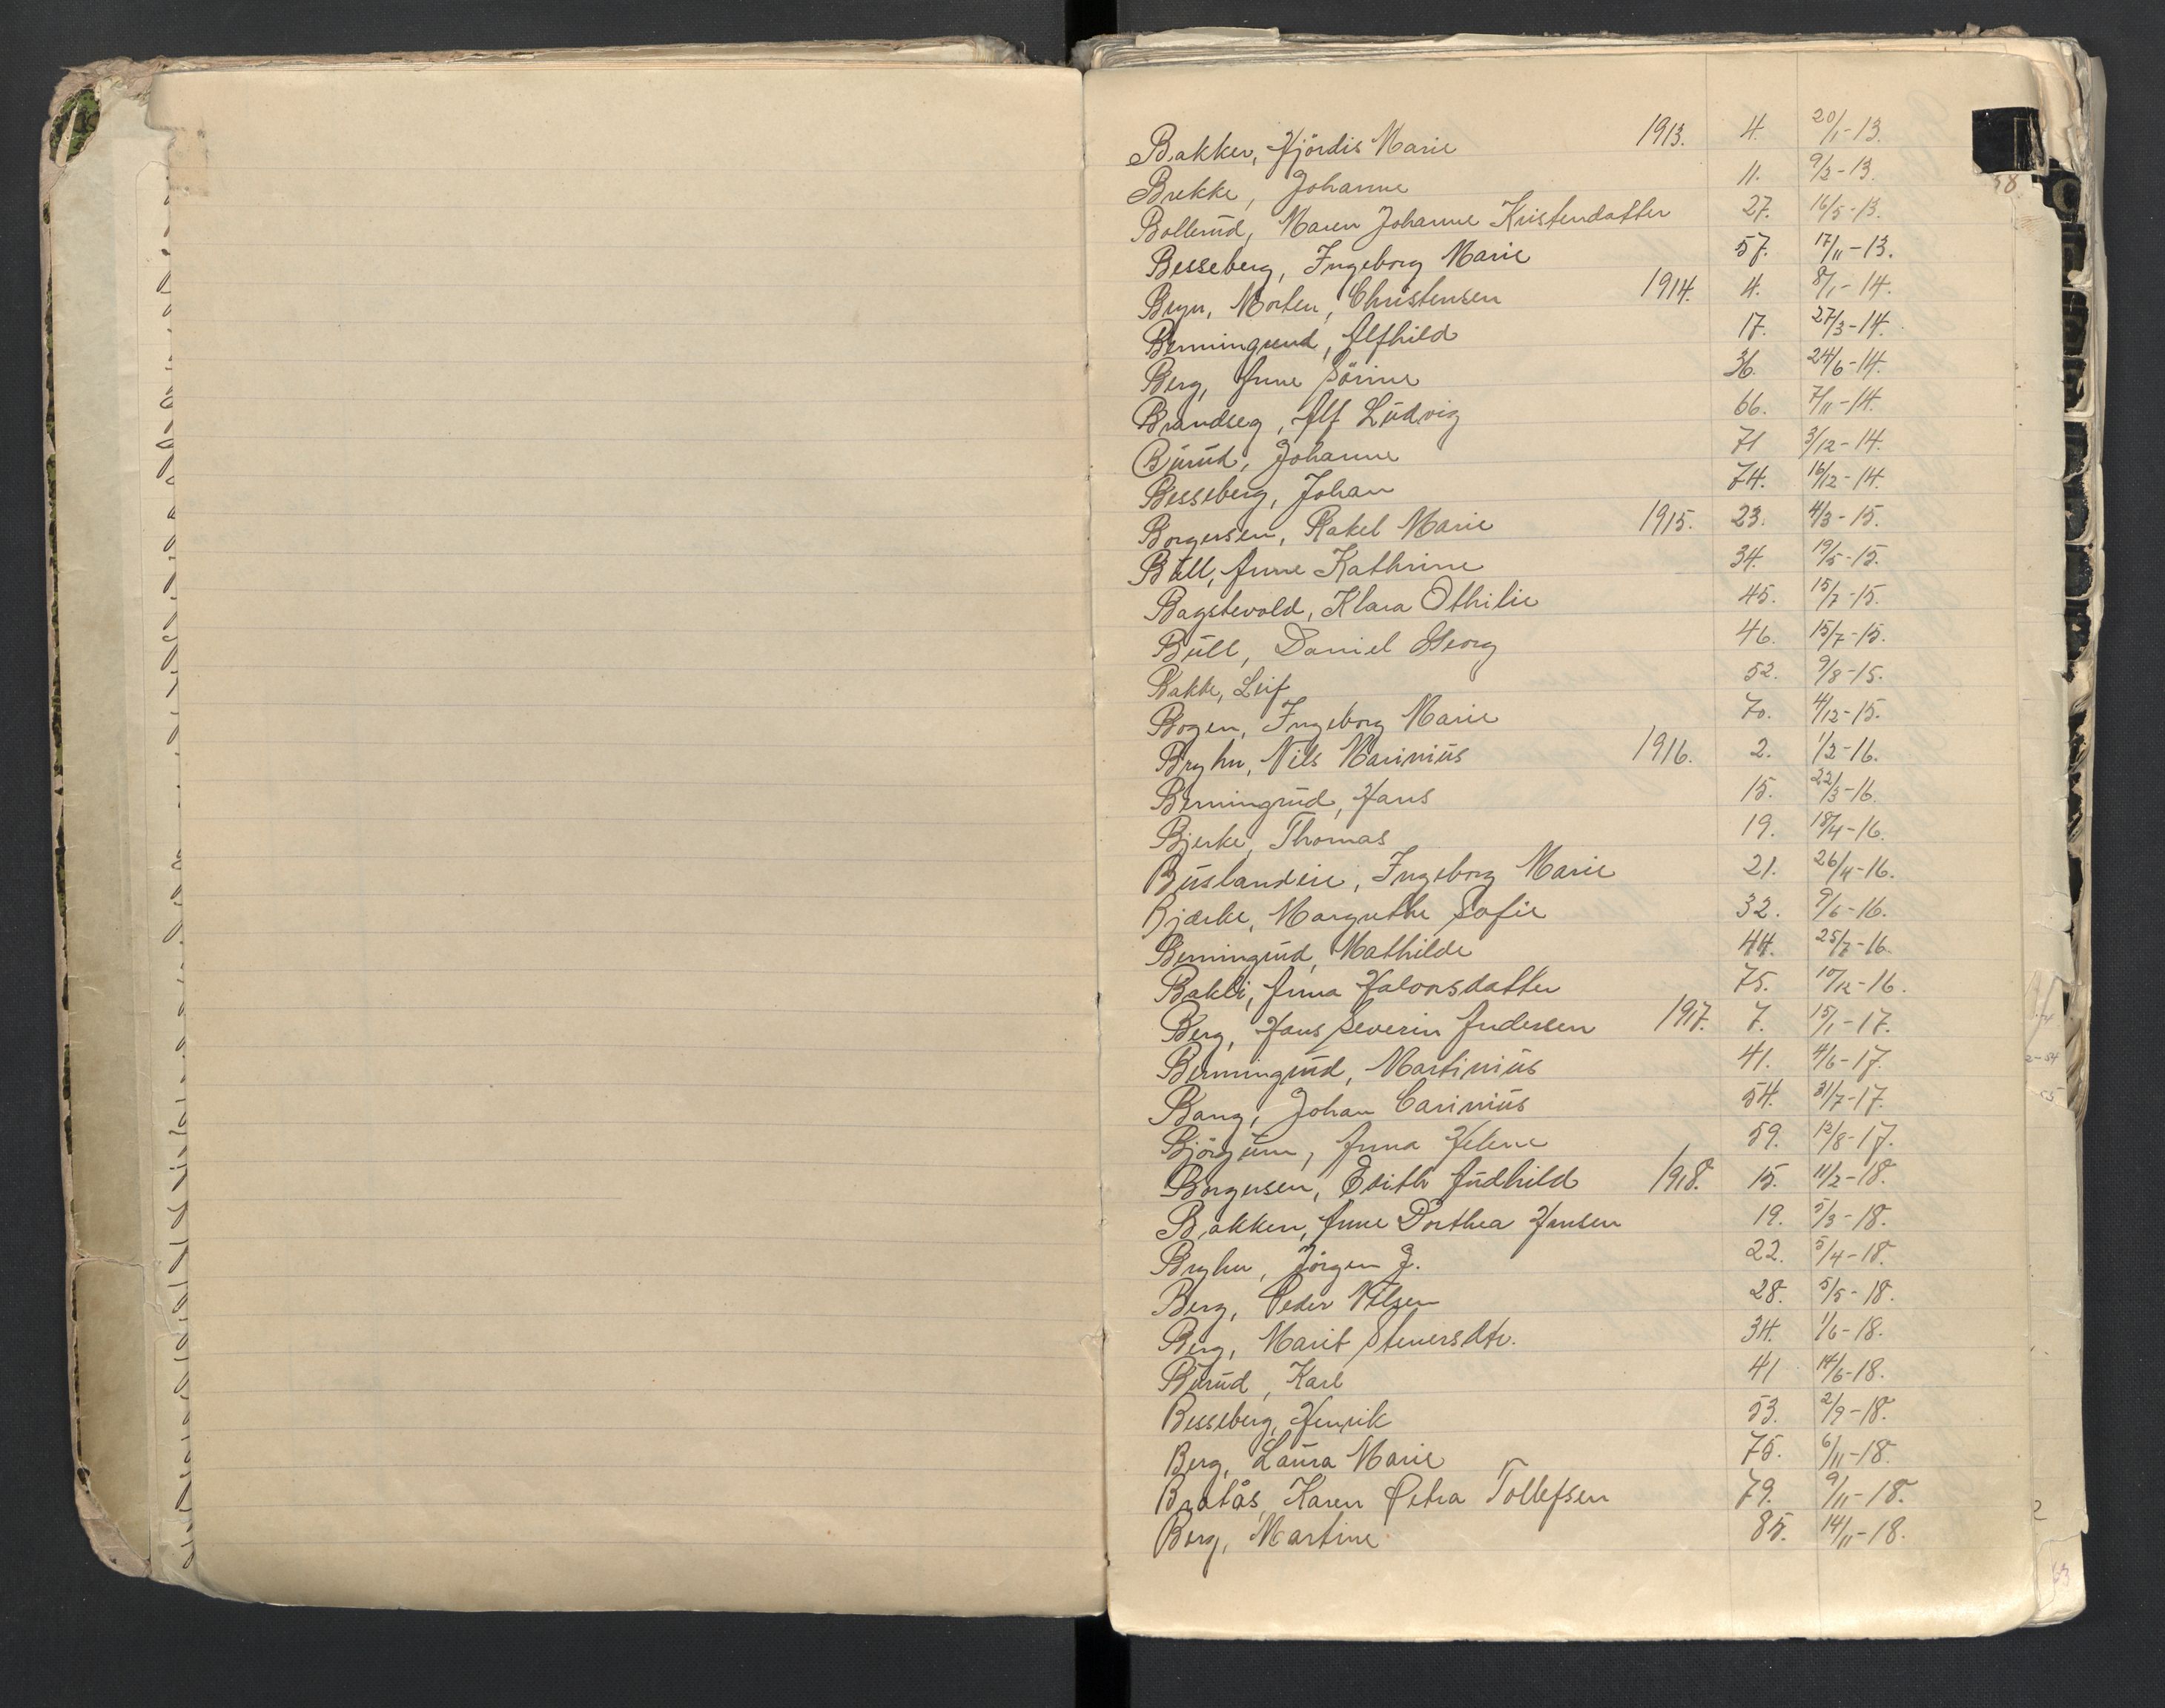 Bakker, Hjördis Marie 1913. 4. 20/1-13.
Brekke, Johanne 11. 9/2-13.
Bollerud, Maren Johanne Kristendatter 27. 16/5-13.
Besseberg, Ingeborg Marie 57. 17/11-13.
Bryn, Morten, Christensen 1914. 4. 8/1-14.
Benningrud, Alfhild 17. 27/3-14.
Berg, Anne Sörine 36. 24/6-14.
Brandseg, Alf Ludvig 66. 7/11-14.
Burud, Johanne 71 3/12-14.
Besseberg, Johan 74. 16/12-14.
Borgersen, Rakel Marie 1915. 23. 4/3-15.
Bull, Anne Kathrine 34. 19/5-15.
Bagstevold, Klara Othilie 45. 15/7-15.
Bull, Daniel Georg 46. 15/7-15.
Bakke, Leif 52. 9/8-15.
Bogen, Ingeborg Marie 70. 4/12-15.
Bryhn, Nils Marinius 1916. 2. 1/2-16.
Benningrud, Hans 15. 22/3-16.
Bjerke, Thomas 19. 18/4-16.
Buslandeie, Ingeborg Marie 21. 26/4-16.
Bjerke, Margrethe Sofie 32. 9/6-16.
Benningrud, Mathilde 44. 25/7-16.
Bakli, Anna Halvorsdatter 75. 10/12-16.
Berg, Hans Severin Andersen 1917. 7. 15/1-17.
Benningrud, Martinius 41. 4/6-17.
Bang, Johan Carinius 54. 31/7-17.
Björgum, Anna Helene 59. 12/8-17.
Borgersen, Edith Audhild 1918. 15. 11/2-18.
Bakken, Anne Dorthea Hansen 19. 5/3-18.
Bryhn, Jörgen J. 22. 5/4-18.
Berg, Peder Nilsen 28. 5/5-18.
Berg, Marit Stenersdtr. 34. 1/6-18.
Burud, Karl 41 14/6-18.
Besseberg, Henrik 53. 2/9-18.
Berg, Laura Marie 75. 6/11-18.
Bratås, Karen Petra Tollefsen 79. 9/11-18.
Berg, Martine 85. 14/11-18.